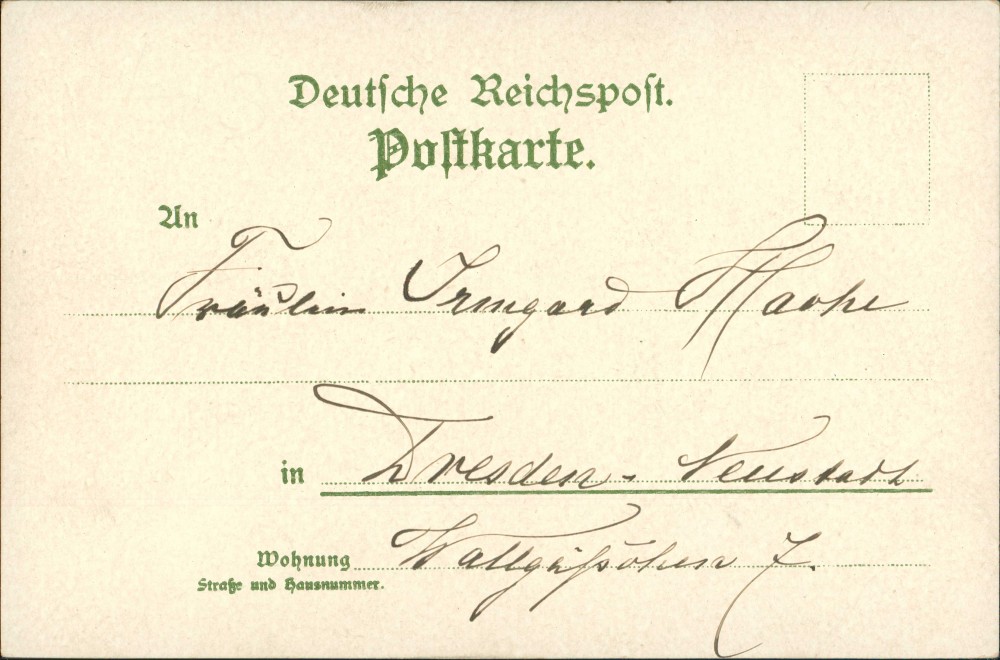 Deutsche Reichspost.
Postkarte.
An
Fräulein Irmgard Hache
in Dresden-Neustadt
Wohnung Wallgäßchen 7.
Straße und Hausnummer.